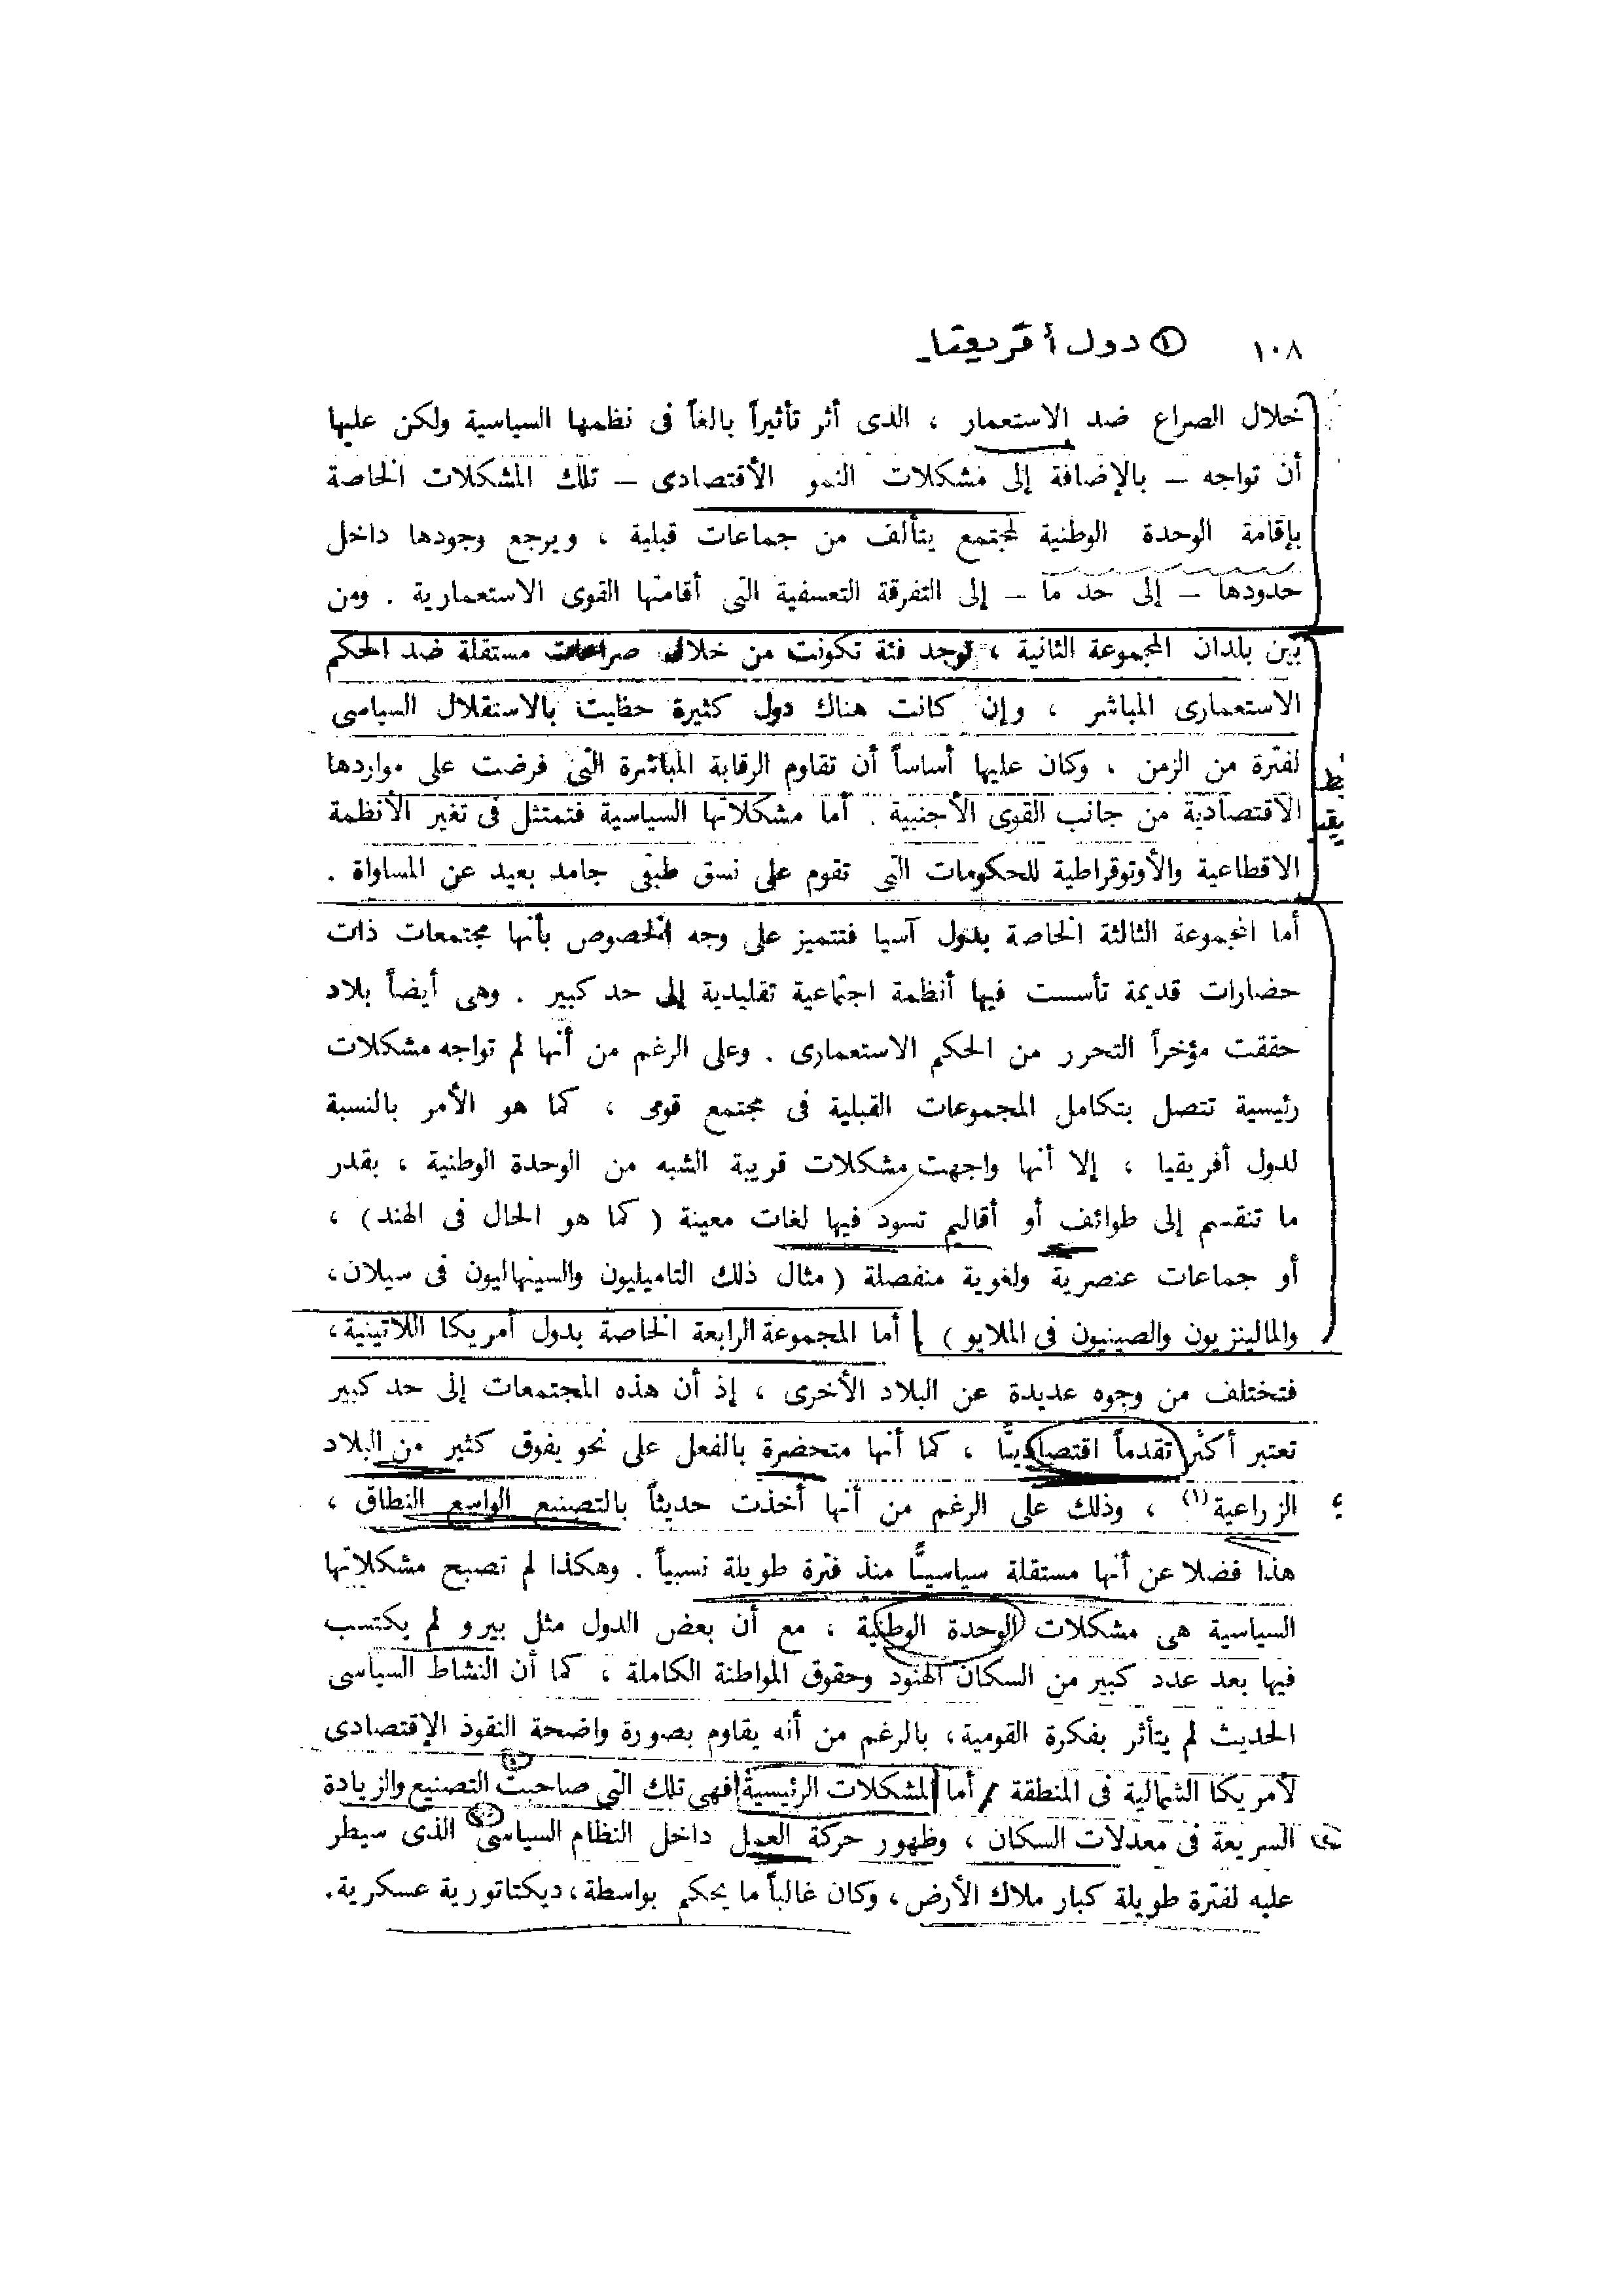 ١٠٨ ① دول أفريقيا
خلال الصراع ضد الاستعمار ، الذى أثر تأثيراً بالغاً فى نظمها السياسية ولكن عليها
أن تواجه – بالإضافة إلى مشكلات النمو الأقتصادى – تلك المشكلات الخاصة
بإقامة الوحدة الوطنية لمجتمع يتألف من جماعات قبلية ، ويرجع وجودها داخل
حدودها – إلى حد ما – إلى التفرقة التعسفية التى أقامتها القوى الاستعمارية . ومن
بين بلدان المجموعة الثانية ، توجد فئة تكونت من خلال صراعات مستقلة ضد الحكم
الاستعمارى المباشر ، وإن كانت هناك دول كثيرة حظيت بالاستقلال السياسى
لفترة من الزمن ، وكان عليها أساساً أن تقاوم الرقابة المباشرة التى فرضت على مواردها
الاقتصادية من جانب القوى الأجنبية . أما مشكلاتها السياسية فتمتثل فى تغير الأنظمة
الاقطاعية والأوتوقراطية للحكومات التى تقوم على نسق طبقى جامد بعيد عن المساواة .
أما المجموعة الثالثة الخاصة بدول آسيا فتتميز على وجه الخصوص بأنها مجتمعات ذات
حضارات قديمة تأسست فيها أنظمة اجتماعية تقليدية إلى حد كبير . وهى أيضاً بلاد
حققت مؤخراً التحرر من الحكم الاستعمارى . وعلى الرغم من أنها لم تواجه مشكلات
رئيسية تتصل بتكامل المجموعات القبلية فى مجتمع قومى ، كما هو الأمر بالنسبة
لدول أفريقيا ، إلا أنها واجهت مشكلات قريبة الشبه من الوحدة الوطنية ، بقدر
ما تنقسم إلى طوائف أو أقاليم تسود فيها لغات معينة ( كما هو الحال فى الهند ) ،
أو جماعات عنصرية ولغوية منفصلة ( مثال ذلك التاميليون والسينهاليون فى سيلان ،
والمالينزيون والصينيون فى الملايو ) أما المجموعة الرابعة الخاصة بدول أمريكا اللاتينية ،
فتختلف من وجوه عديدة عن البلاد الأخرى ، إذ أن هذه المجتمعات إلى حد كبير
تعتبر أكثر تقدماً اقتصاديًّا ، كما أنها متحضرة بالفعل على نحو يفوق كثير من البلاد
الزراعية (١) ، وذلك على الرغم من أنها أخذت حديثاً بالتصنيع الواسع النطاق ،
هذا فضلا عن أنها مستقلة سياسيًّا منذ فترة طويلة نسبياً . وهكذا لم تصبح مشكلاتها
السياسية هى مشكلات الوحدة الوطنية ، مع أن بعض الدول مثل بيرو لم يكتسب
فيها بعد عدد كبير من السكان الهنود وحقوق المواطنة الكاملة ، كما أن النشاط السياسى
الحديث لم يتأثر بفكرة القومية ، بالرغم من أنه يقاوم بصورة واضحة النفوذ الإقتصادى
لأمريكا الشمالية فى المنطقة ، أما المشكلات الرئيسية فهى تلك التى صاحبت التصنيع والزيادة
السريعة فى معدلات السكان ، وظهور حركة العمل داخل النظام السياسى الذى سيطر
عليه لفترة طويلة كبار ملاك الأرض ، وكان غالباً ما يحكم بواسطة ، ديكتاتورية عسكرية .